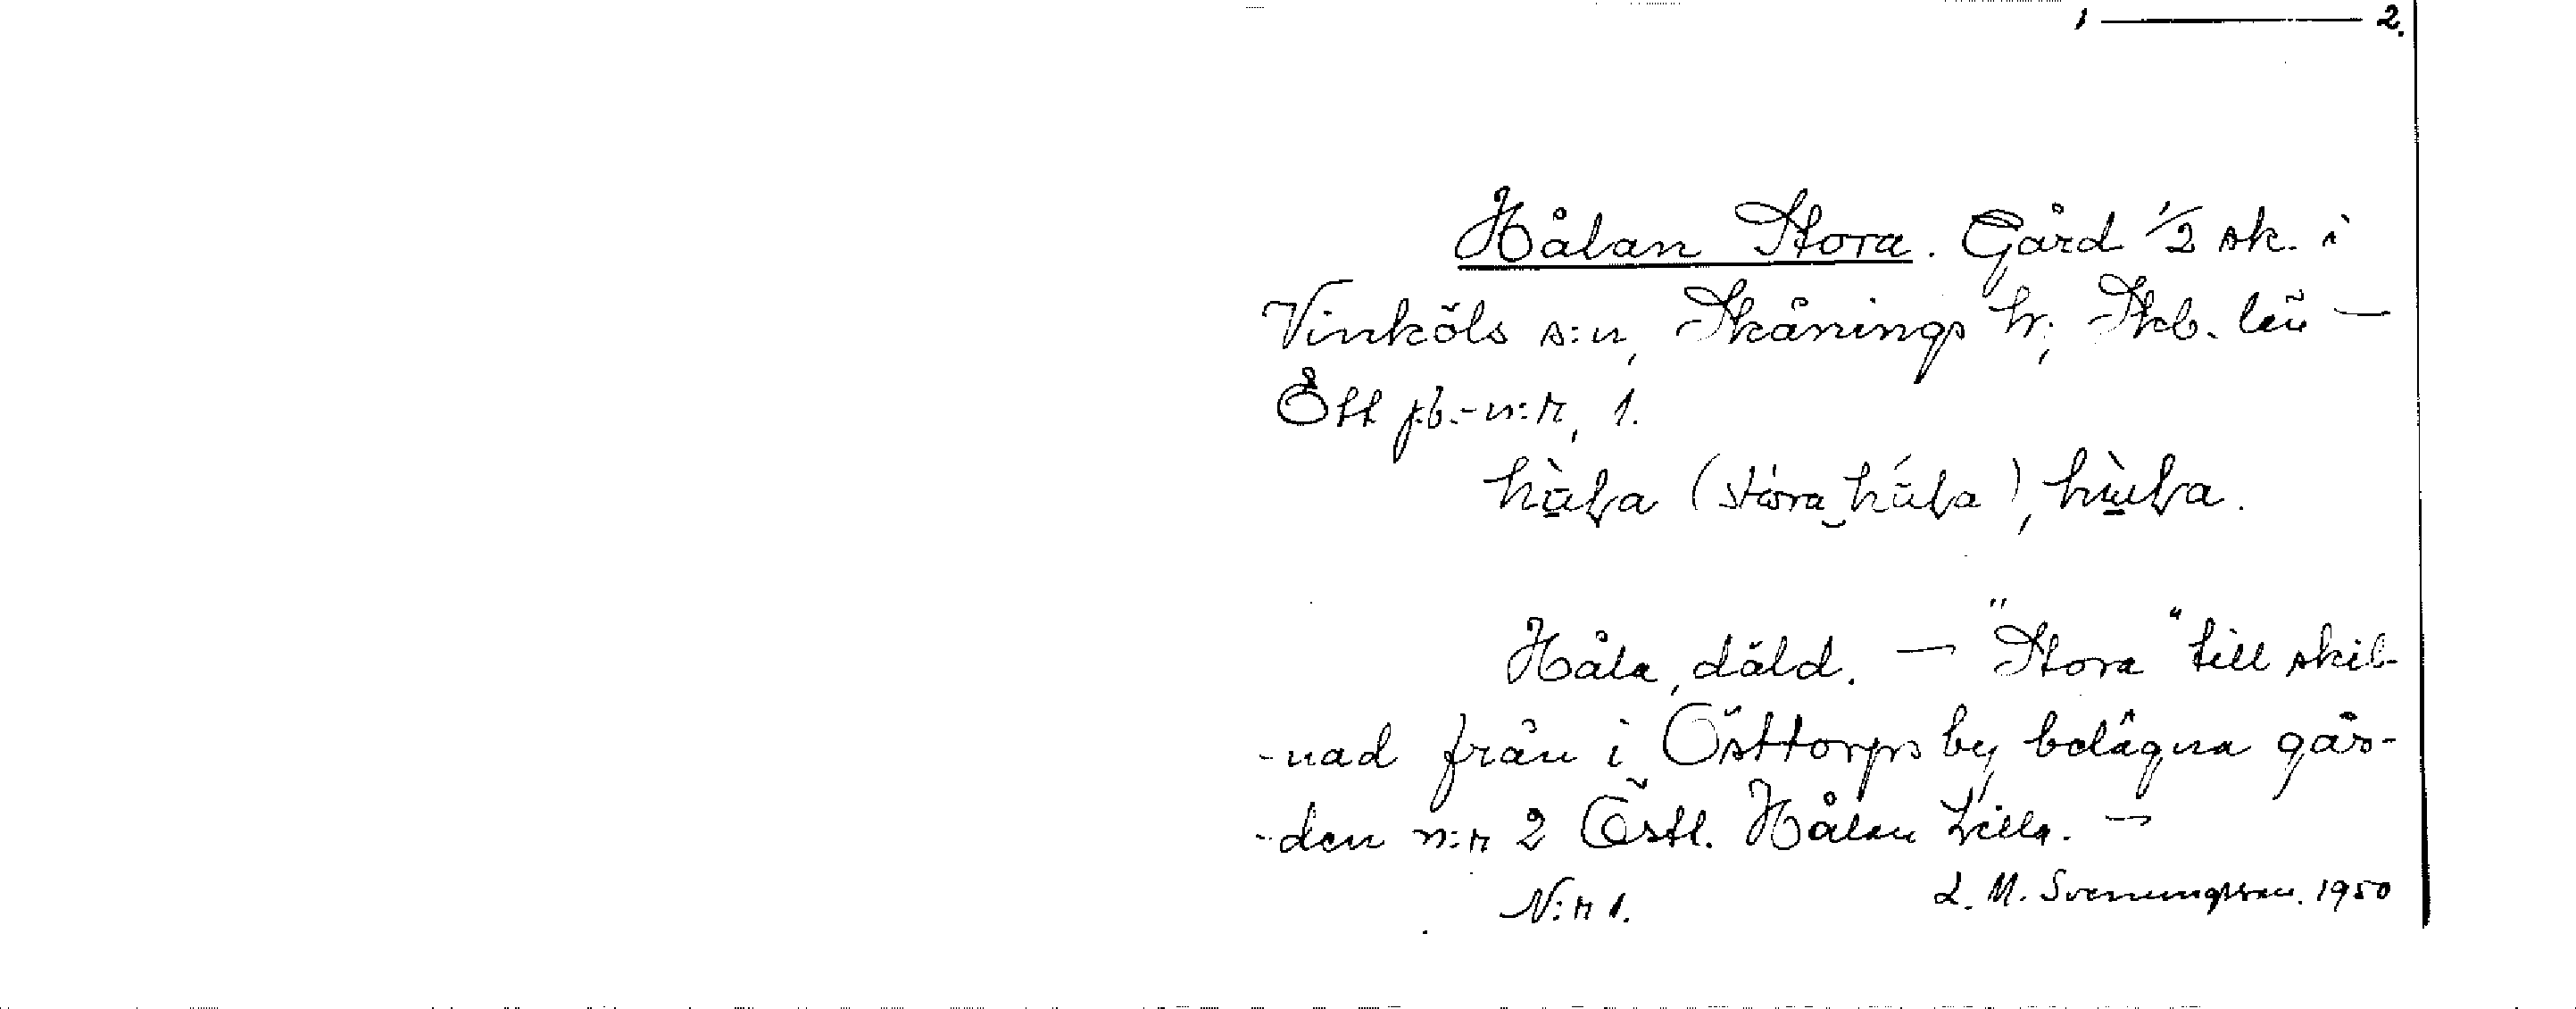 1 — 2.
Hålan Stora. Gård 1/2 sk. i
Vinköls s:n, Skånings hr; Skb. län —
Ett jb.-n:r, 1.
hùla (stóra húla), hùla.
Håla, däld. — "Stora" till skil-
-nad från i Östtorps by belägna går-
-den n:r 2 Östl. Hålan Lilla. —
N:r 1. L. M. Svenungsson. 1950